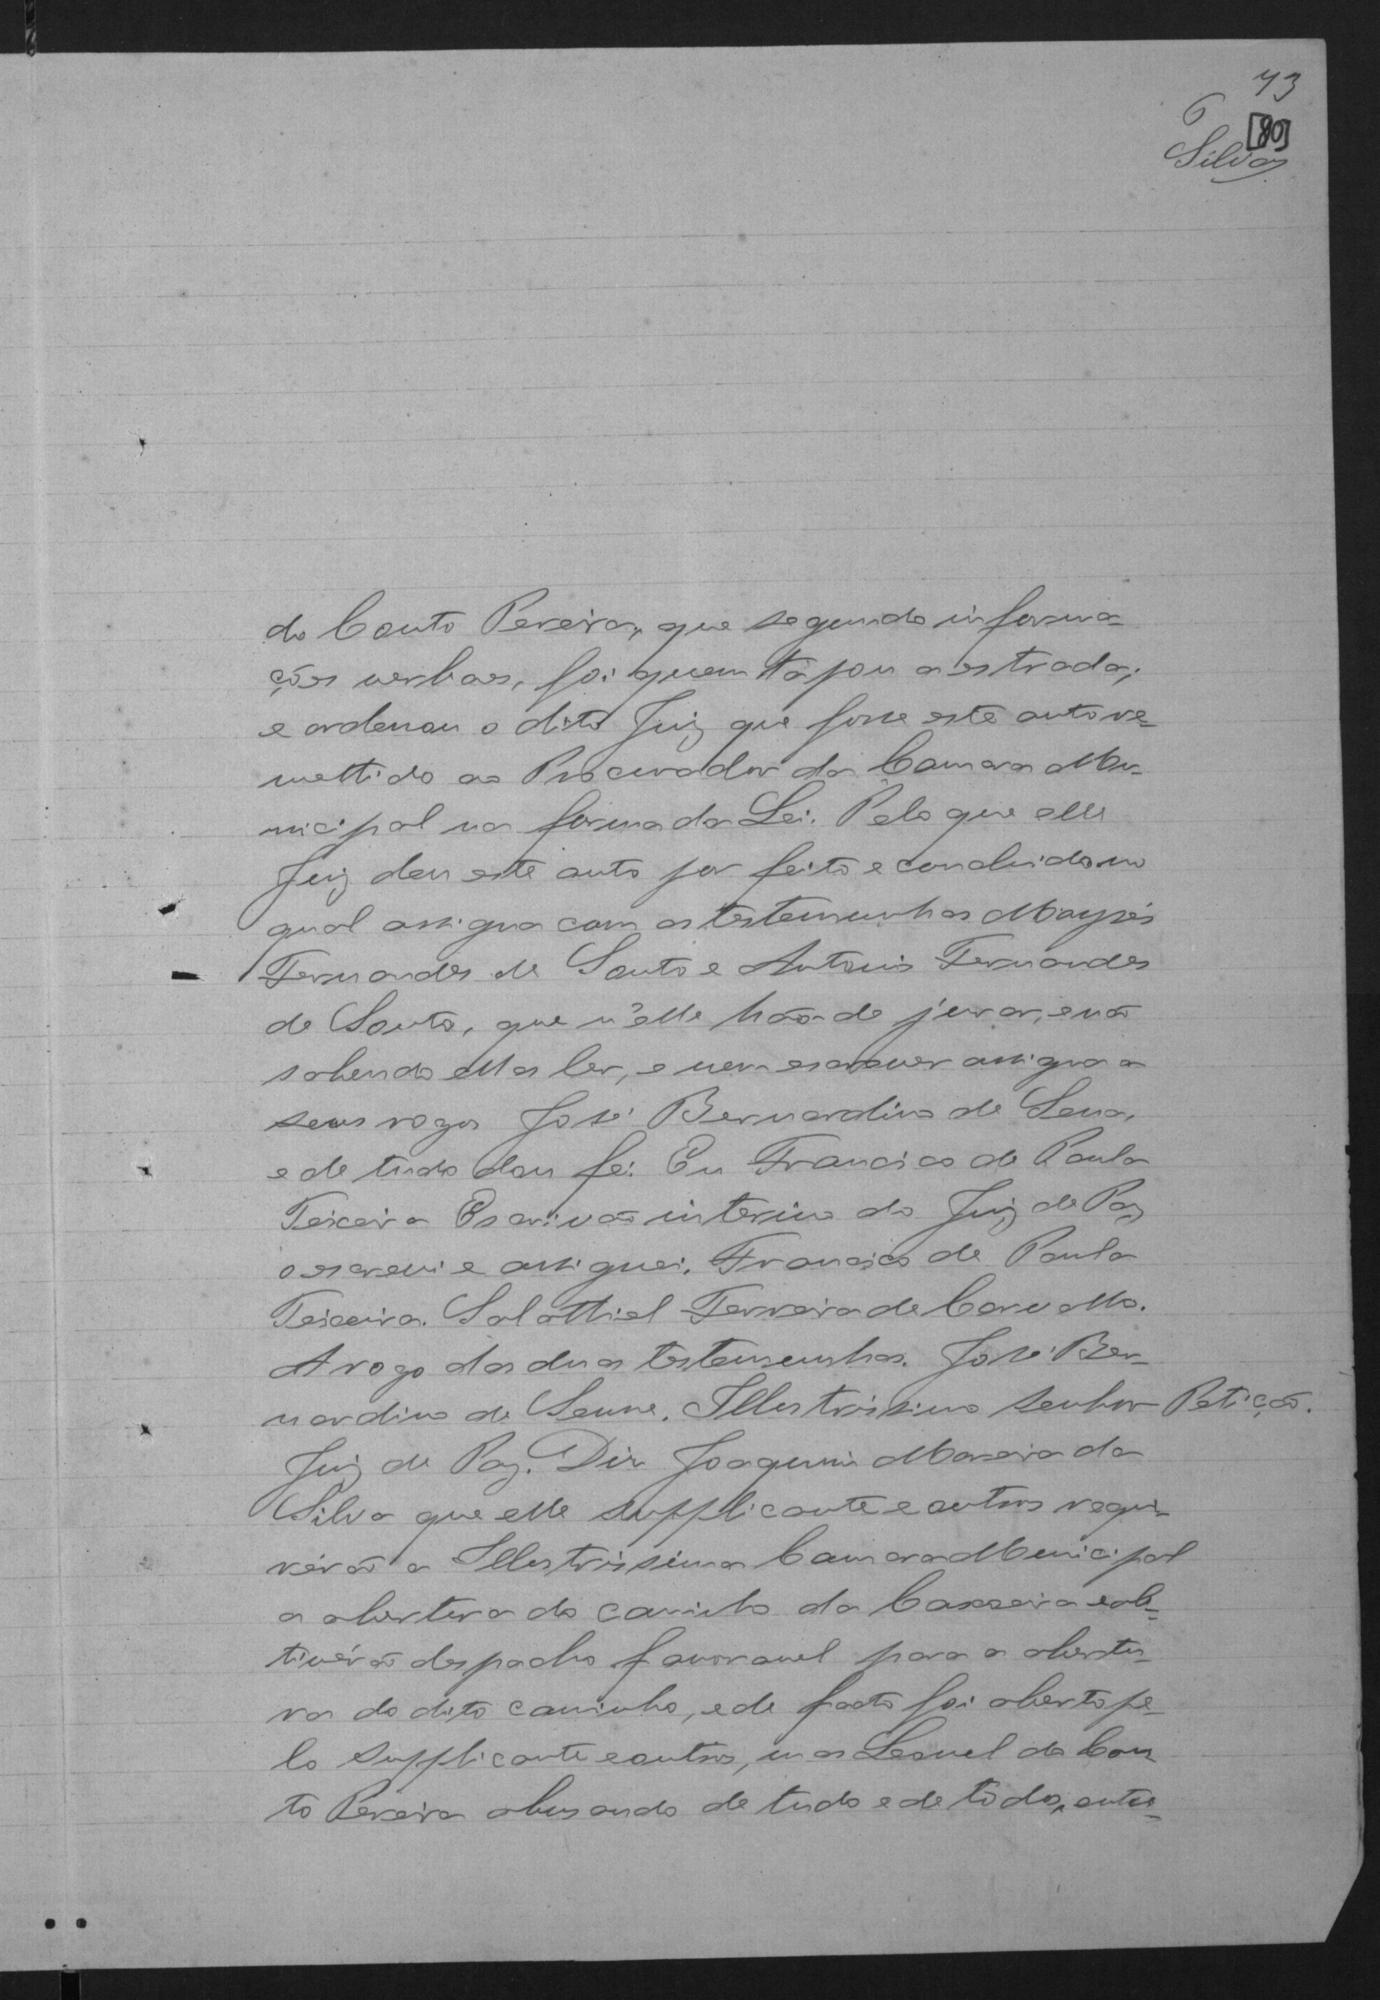 73
6
[80]
Silva
do Couto Pereira, que segundo informa-
ções verbaes, foi quem tápou a estrada;
e ordenou o dito Juiz que fosse este auto re-
mettido ao Procurador da Camara Mu-
nicipal na forma da Lei. Pelo que elle
Juiz deu este auto por feito e concluido no
qual assigna com as testemunhas Moysés
Fernandes de Souto e Antonio Fernandes
de Souto, que n'elle hão de jurar, e não
sabendo ellas ler, e nem escrever assigna a
seus rogos José Bernardino de Sena,
e de tudo dou fé. Eu Francisco de Paula
Teixeira Escrivão interino do Juiz de Paz
o escrevi e assignei. Francisco de Paula
Teixeira. Salathiel Ferreira de Carvalho.
A rogo das duas testemunhas. José Ber-
nardino de Senne. Illustrissimo Senhor Petição.
Juiz de Paz. Diz Joaquim Moreira da
Silva que elle supplicante e outros requi-
rérão a Illustrissima Camara Municipal
a abertura do caminho da Caxoeira e ob-
tivérão despacho favoravel para a abertu-
ra do dito caminho, e de facto foi aberto pe-
lo supplicante e outros, mas Leonel do Cou
to Pereira abusando de tudo e de tôdos, entu-